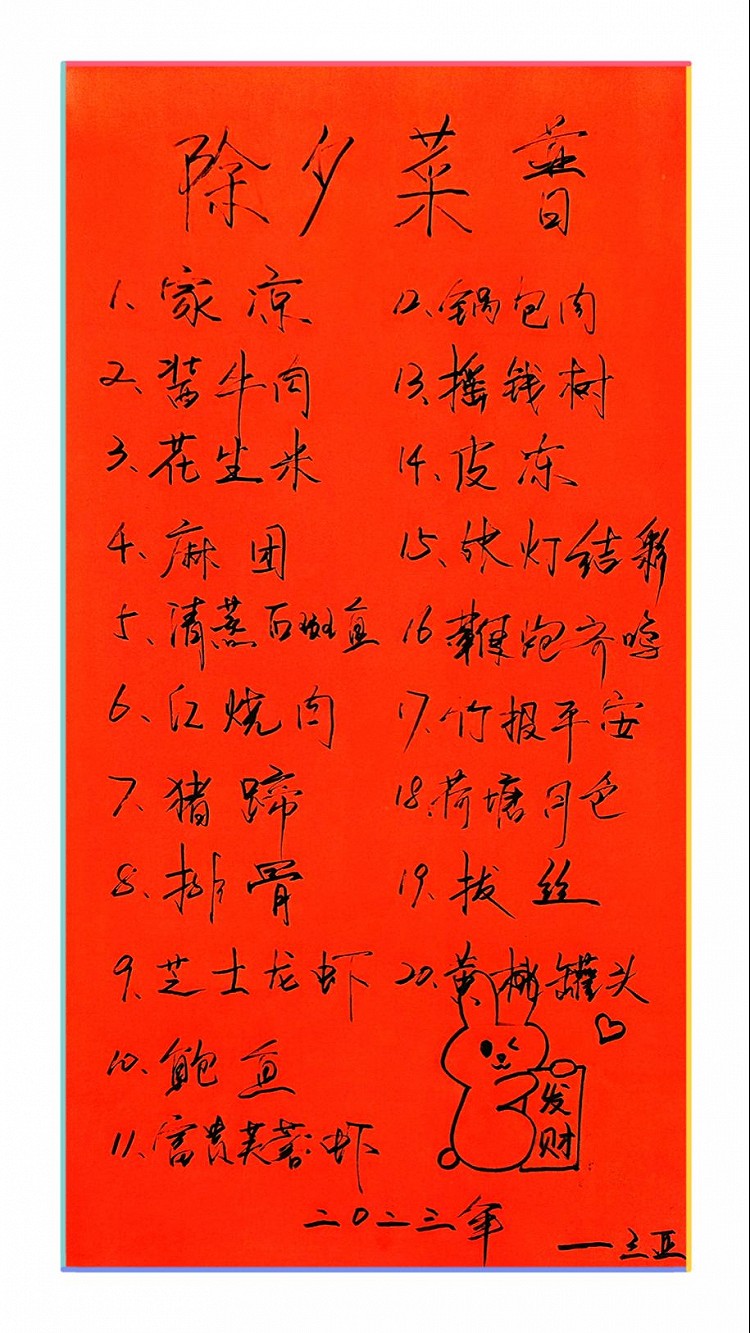 除夕菜普
1、家凉
2、酱牛肉
3、花生米
4、麻团
5、清蒸石斑鱼
6、红烧肉
7、猪蹄
8、排骨
9、芝士龙虾
10、鲍鱼
11、富贵芙蓉虾
12、锅包肉
13、摇钱树
14、皮冻
15、张灯结彩
16、鞭炮齐鸣
17、竹报平安
18、荷塘月色
19、拔丝
20、黄桃罐头
发
财
二0二三年
—三亚